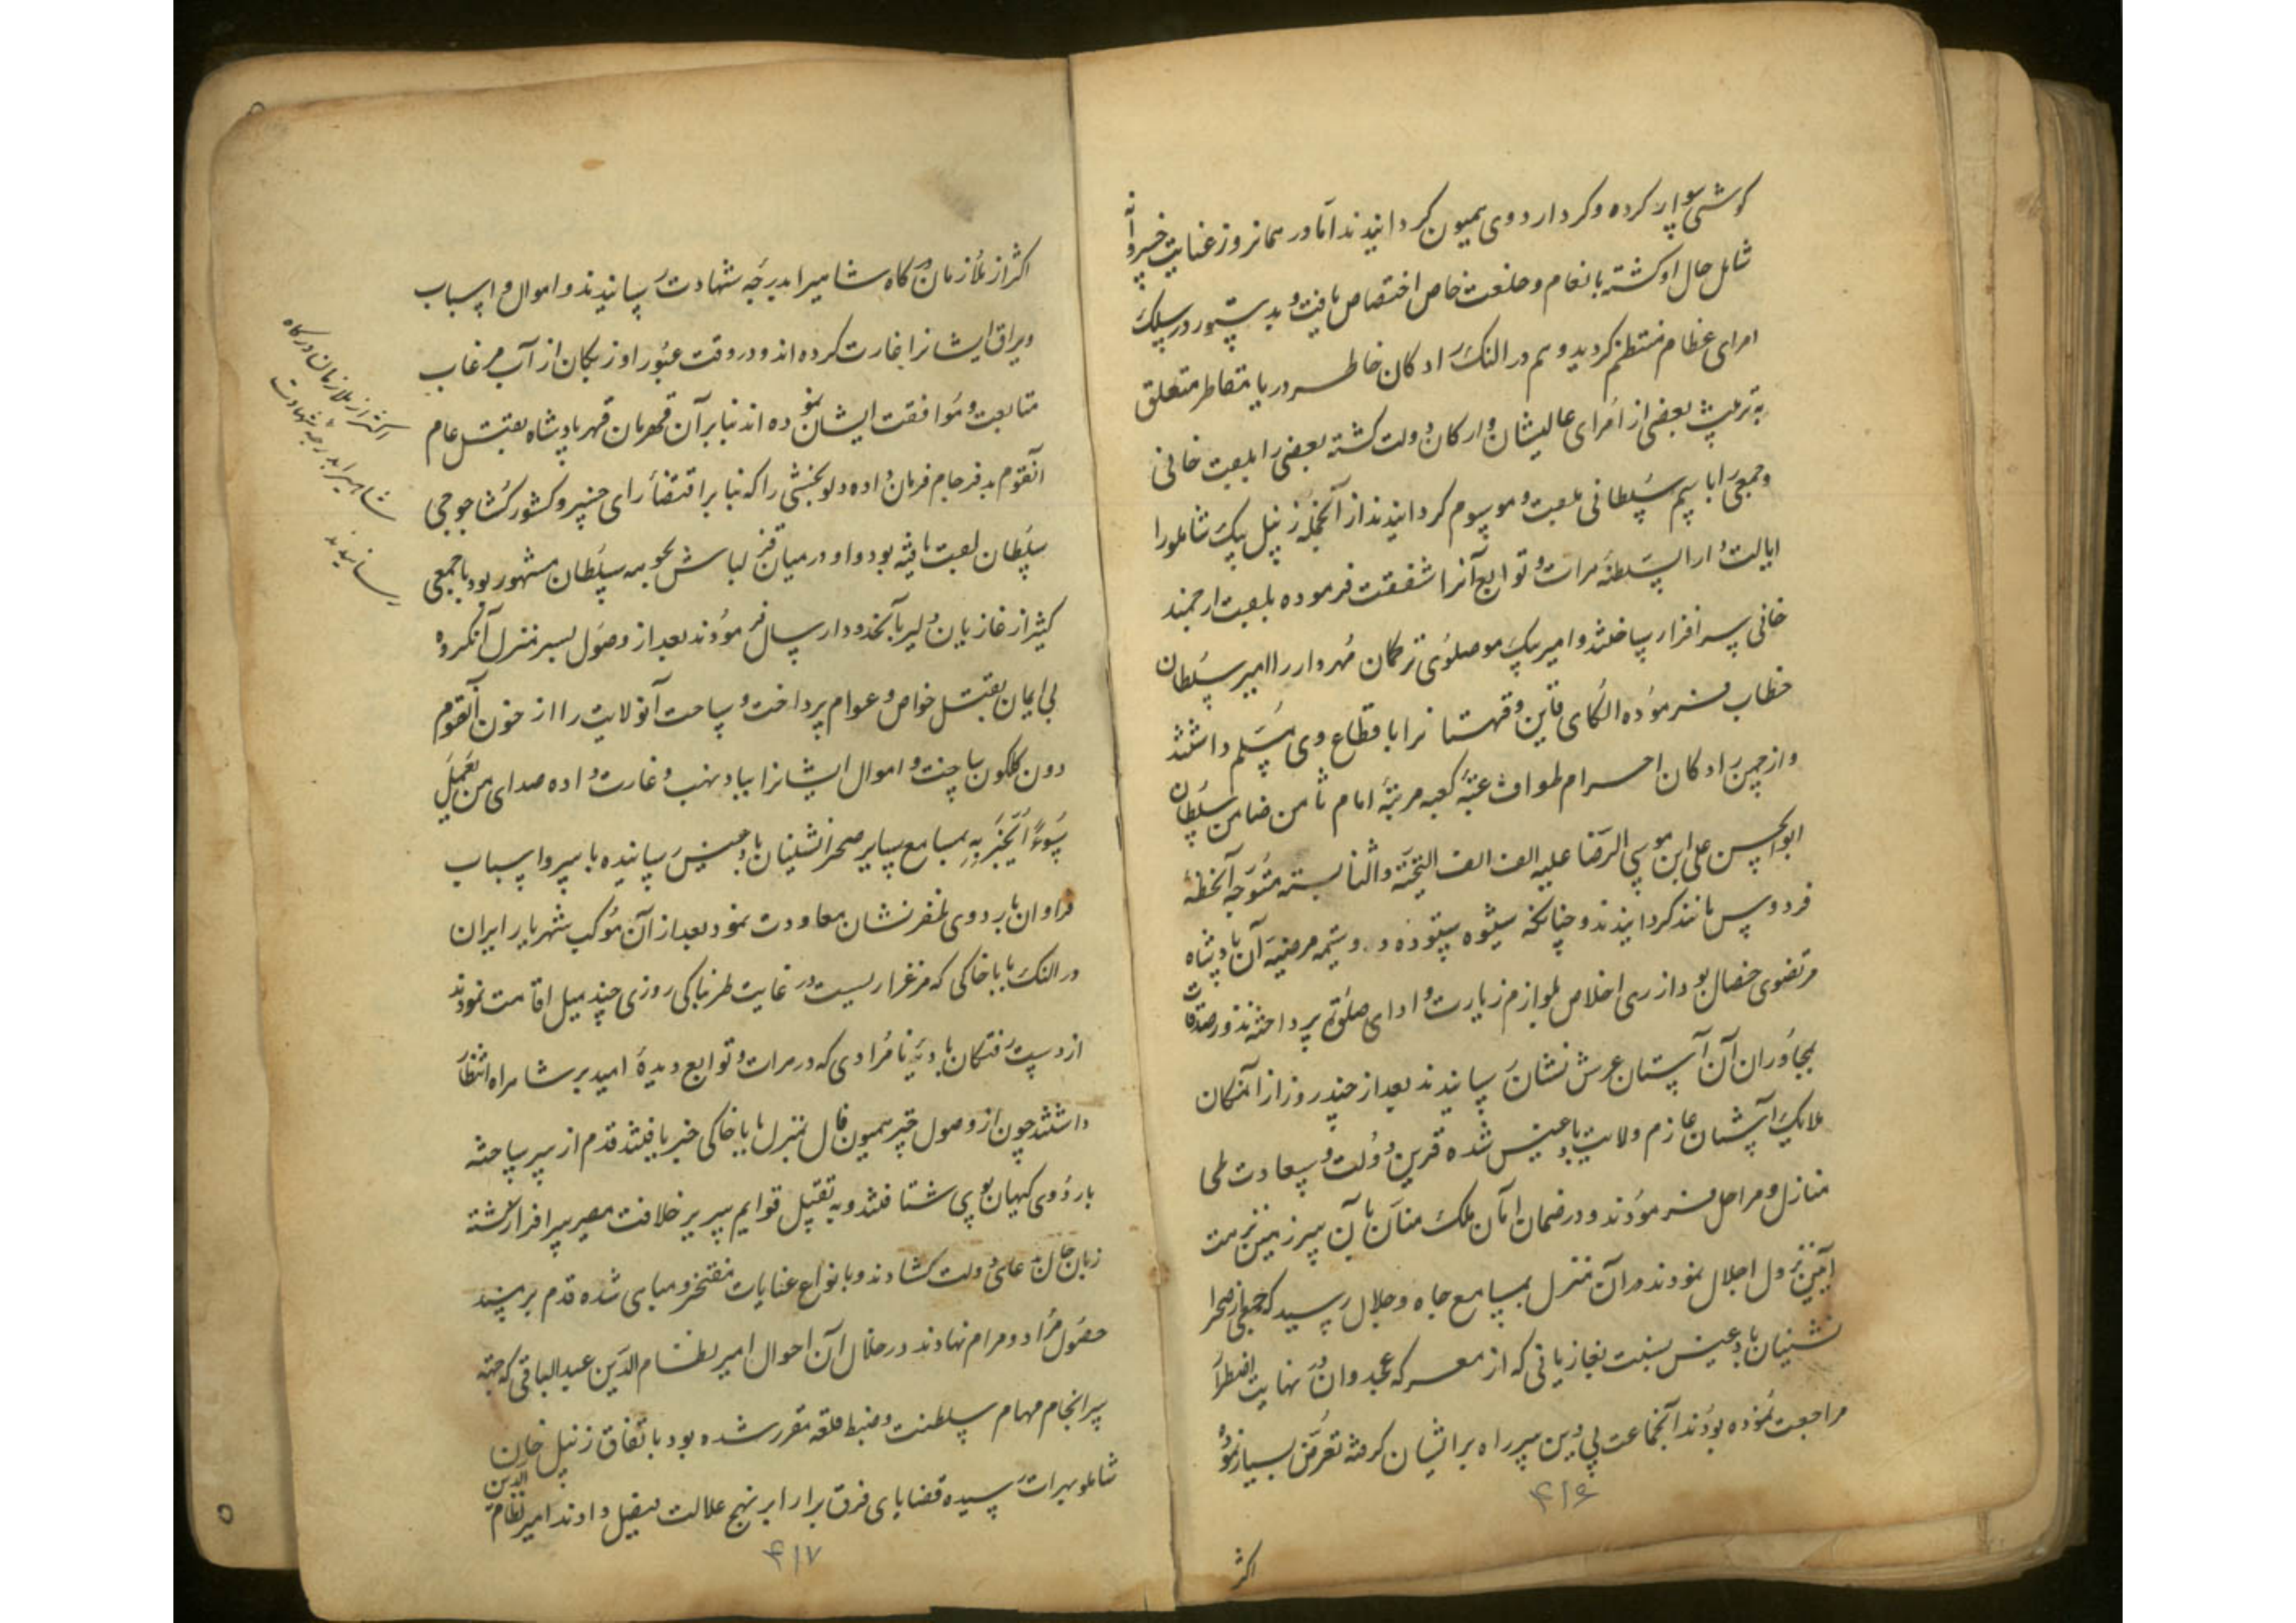 کوشی سوار کرده و کرد اردوی همیون گردانیدند اما در همانروز عنایت خسروانه
شامل حال او گشته بانعام و خلعت خاص اختصاص یافت و بدستور در سلک
امرای عظام منتظم گردید و هم در النک رادکان خاطر دریا مقاطر متعلق
به تربیت بعضی از امرای عالیشان و ارکان دولت گشته بعضی را بلعبت خانی
و جمعی را باسم سلطانی ملعبت و موسوم گردانیدند از آنجمله زنیل بیک شاملو را
ایالت دار السلطنه هرات و توابع آنرا شفقت فرموده بلعبت ارجمند
خانی سر افراز ساختند و امیر بیک موصلوی ترکمان مهردار را امیر سلطان
خطاب فرموده الکای قاین و قهستانرا باقطاع وی مسلم داشتند
و از چمن رادکان احرام طواف عتبه کعبه مرتبه امام ثامن ضامن سلطان
ابو الحسن علی ابن موسی الرضا علیه الف الف التحیته و الثنا بسته متوجه آنخطه
فردوس مانند گردانیدند و چنانکه شیوه ستوده و شیمه مرضیه آن پادشاه
مرتضوی خصال بود از روی اخلاص بلوازم زیارت و ادای صلوة پرداخته نذور صدقات
بمجاوران آن آستان عرش نشان رسانیدند بعد از چند روز از آنمکان
ملایک آشیان عازم ولایت بادغیس شده قرین دولت و سعادت طی
منازل و مراحل فرمودند و در ضمان امان ملک منان بآن سرزمین نزهت
آیین نزول اجلال نمودند در آن منزل بمسامع جاه و جلال رسید که جمعی از صحرا
نشینان بادغیس بنسبت بغازیانی که از معرکه غجدوان در نهایت اضطرار
مراجعت نموده بودند آنجماعت بی دین سر راه بر ایشان گرفته تعرض بسیار نموده
۴۱۶
اکثر
اکثر از ملازمان درگاه شاهیرا بدرجه شهادت رسانیدند و اموال و اسباب
و یراق ایشانرا غارت کرده اند و در وقت عبور اوزبکان از آب مرغاب
متابعت و موافقت ایشان نموده اند بنا بر آن قهرمان قهر پادشاه بقتل عام
آنقوم بد فرجام فرمان داده دلو بخشی را که بنا بر اقتضای رای خسرو کشور گشا جوجی
سلطان لعبت یافته بود و او در میان قزلباش بحوهه سلطان مشهور بود با جمعی
کثیر از غازیان دلیر بآنحدود ارسال فرمودند بعد از وصول بسر منزل آنکروه
بی ایمان بقتل خواص و عوام پرداخت و ساحت آنولایت را از خون آنقوم
دون گلگون ساخت و اموال ایشانرا بباد نهب و غارت داده صدای من یعمل
سوءا یجز به بمسامع سایر صحرا نشینان بادغیس رسانیده با سر و اسباب
فراوان باردوی ظفر نشان معاودت نمود بعد از آن موکب شهریار ایران
در النک بابا خاکی که مرغزاریست در غایت طربناکی روزی چند میل اقامت نمودند
از دست رفتگان بادیه نامرادی که در هرات و توابع دیدهٔ امید بر شاهراه انتظار
داشتند چون از وصول چتر همیون فال بمنزل بابا خاکی خبر یافتند قدم از سر ساخته
باردوی کیهان پوی شتافتند و به تقبیل قوایم سریر خلافت مصیر سرافراز گشته
زبان حال بدعای دولت گشادند و بانواع عنایات مفتخر و مباهی شده قدم بر مسند
حصول مراد و مرام نهادند در خلال آن احوال امیر نظام الدین عبد الباقی که جهته
سرانجام مهام سلطنت و ضبط قلعه مقرر شده بود باتفاق زنیل خان
شاملو بهرات رسیده قضایای فرق برارا بر نهج عدالت فیصل دادند امیر نظام الدین
۴۱۷
اکثر از ملازمان درگاه
شاهیرا بدرجه شهادت
رسانیدند